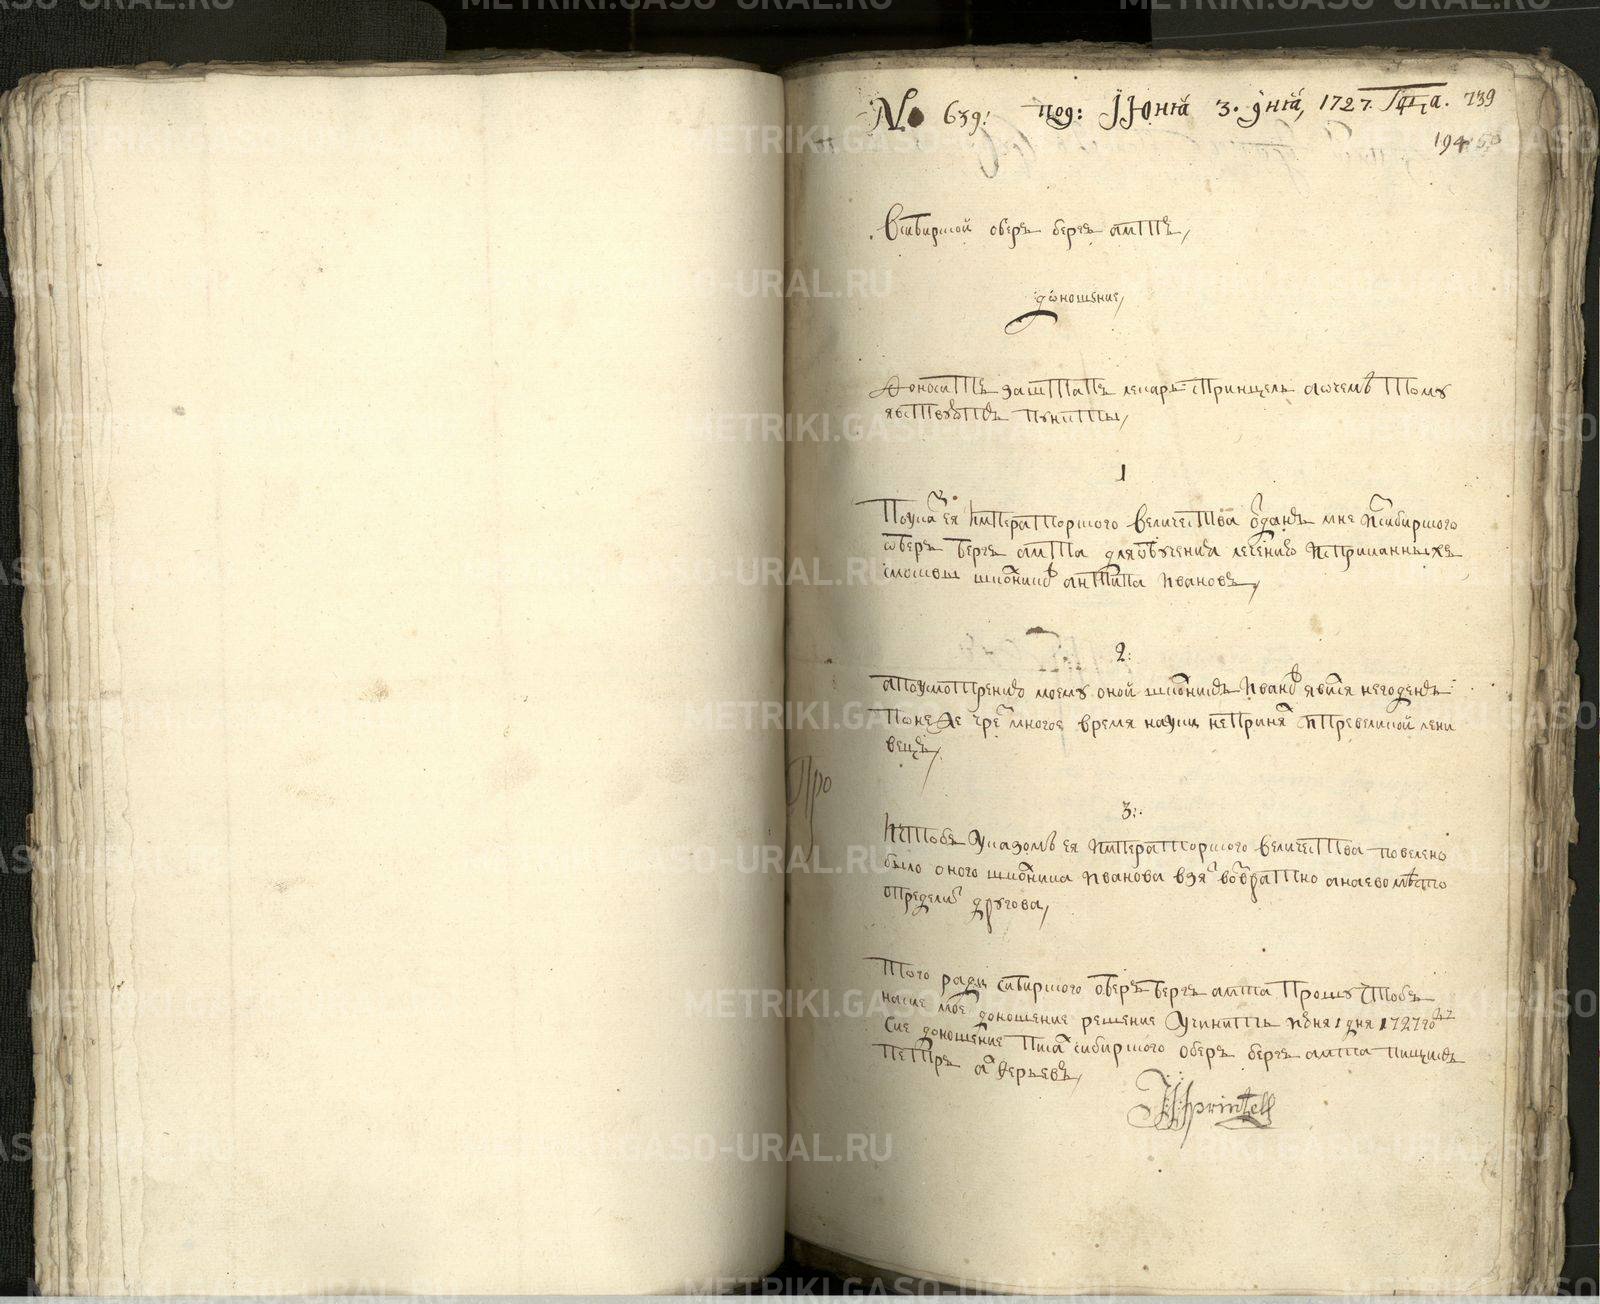 № 639: под: Июня 3. дня, 1727. Года. 739
194
Всибирской оберъ бергъ амтъ,
доношение,
Доноситъ заштатъ лекарь спринцель а очемъ тому
явствуютъ пункты,
1
Поука ея императорского величества оданъ мне исибирского
оберъ бергъ амта для обучения лечению исприсланныхъ
смосквы школникъ антипа ивановъ,
2:
апоусмотрению моему оной школникъ иванов явися негоденъ
понеже чрез многое время науки неприня и превеликой лени
вецъ,
3:
ичтобъ указомъ ея императорского величества повелено
было оного школника иванова взя возвратно анаево место
определи другова,
Того ради сибирского оберъ бергъ амта прошу чтобъ
насие мое доношение решение учинить июня 1 дня 1727 го
Сие доношение писа сибирского оберъ бергъ амта пищикъ
петръ
JHSprintzell
Про
METRIKI.GASO-URAL.RU